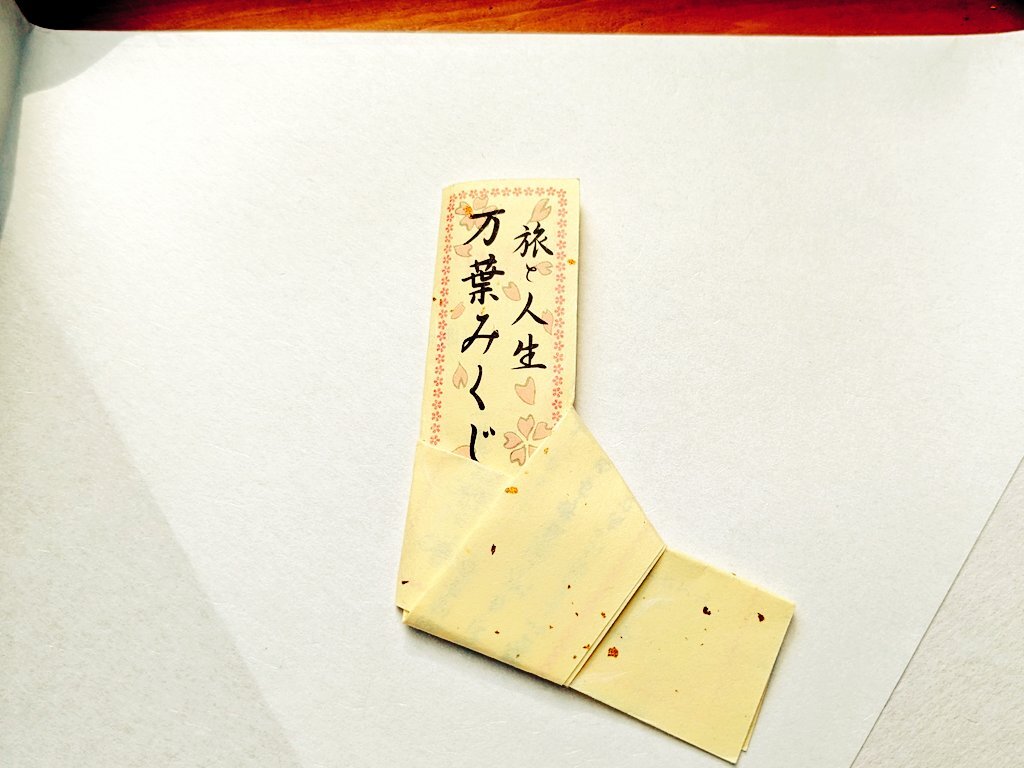 旅と人生
万葉みくじ